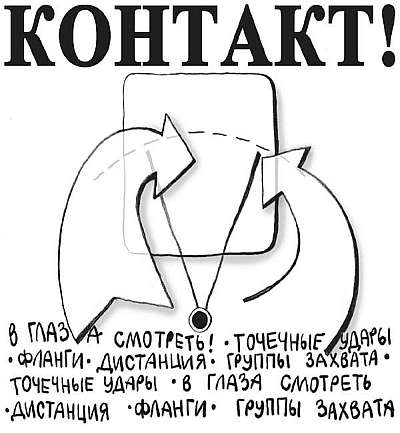 КОНТАКТ!
В ГЛАЗА СМОТРЕТЬ! • ТОЧЕЧНЫЕ УДАРЫ
• ФЛАНГИ • ДИСТАНЦИЯ • ГРУППЫ ЗАХВАТА •
ТОЧЕЧНЫЕ УДАРЫ • В ГЛАЗА СМОТРЕТЬ
• ДИСТАНЦИЯ • ФЛАНГИ • ГРУППЫ ЗАХВАТА